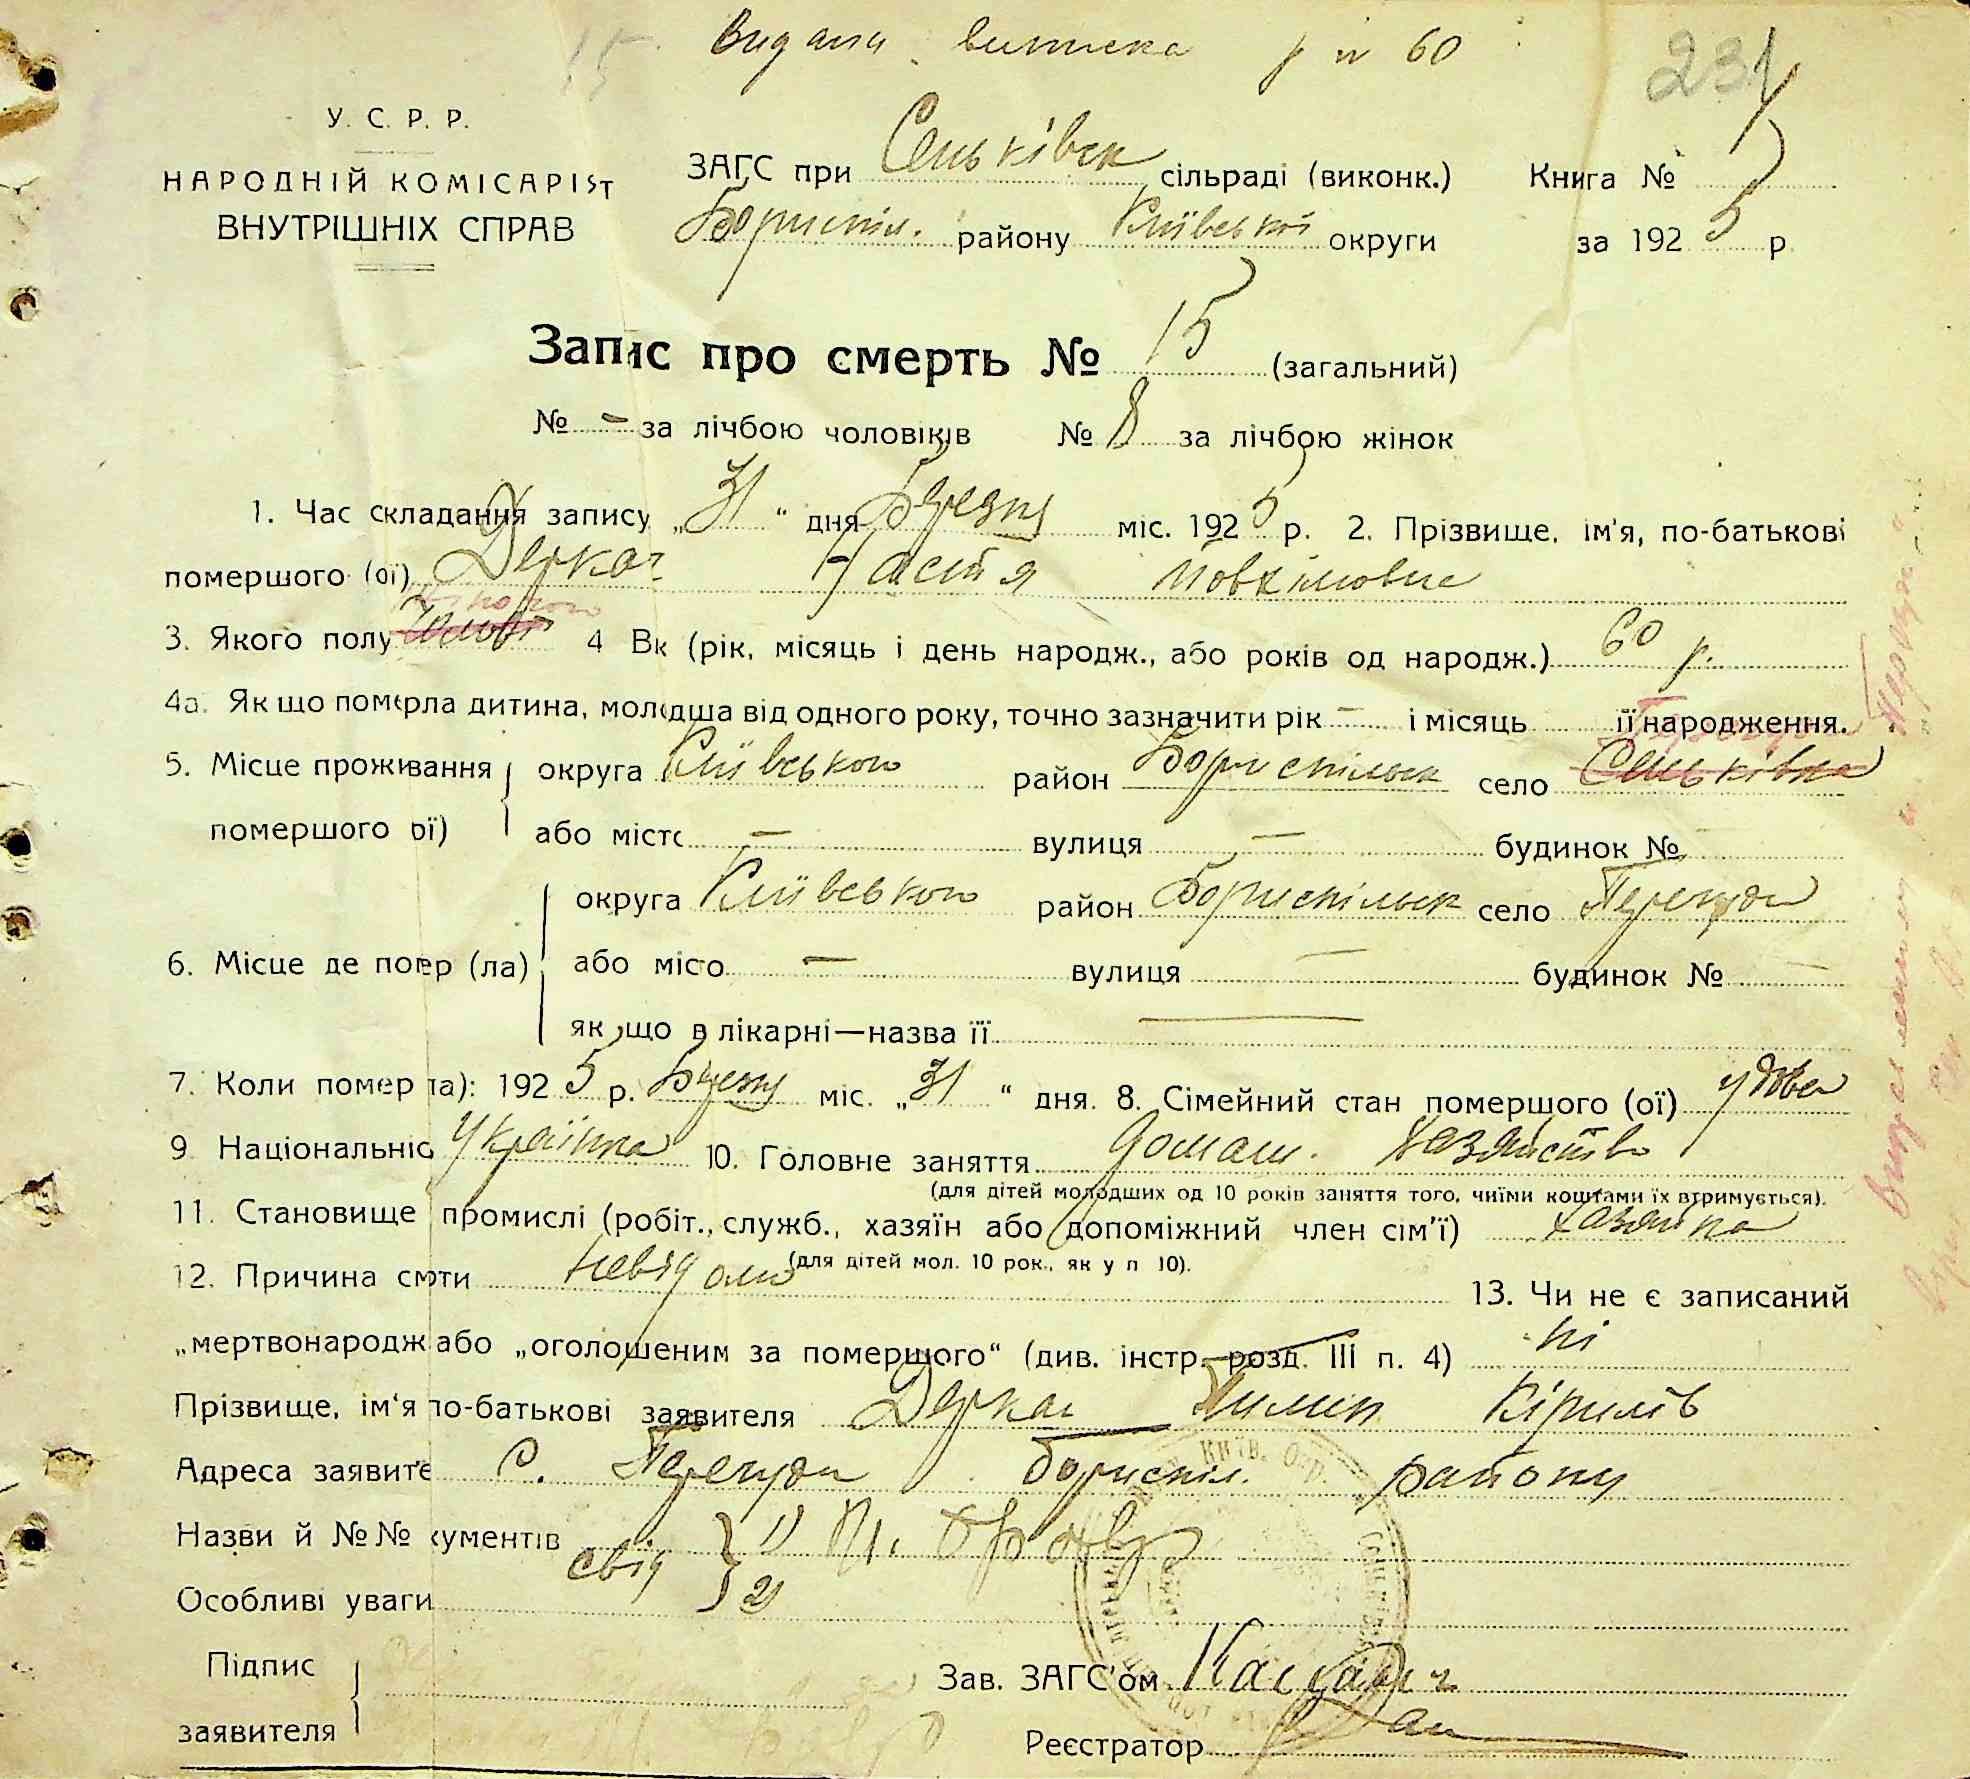 Видана виписка р н 60
15
231
У. С. Р. Р.
НАРОДНІЙ КОМІСАРІЯТ
ВНУТРІШНІХ СПРАВ
ЗАГС при Сеньківск сільраді (виконк.) Книга №
Бориспіл. району Київської округи за 1925 р
Запис про смерть № 15 (загальний)
№ - за лічбою чоловіків № 8 за лічбою жінок
1. Час складання запису „31“ дня Березня міс. 1925 р. 2. Прізвище, ім'я, по-батькові
помершого (ої) Деркач Настя Йовхимовна
3. Якого полу 4 Вк (рік, місяць і день народж., або років од народж.) 60 р.
4а. Якщо померла дитина, молодша від одного року, точно зазначити рік — і місяць її народження.
5. Місце проживання округа Київського район Бориспільск село Сеньківка
помершого ої) або місто — вулиця — будинок №
округа Київського район Бориспільск село Перегуди
6. Місце де помер (ла) або місто — вулиця — будинок № —
якщо в лікарні—назва її —
7. Коли помер ла): 1925 р. Березня міс. „31“ дня. 8. Сімейний стан помершого (ої) удова
9 Національніс Українка 10. Головне заняття домаш. хазяйство
(для дітей молодших од 10 років заняття того, чиїми коштами їх втримується).
11. Становище промислі (робіт., служб., хазяїн або допоміжний член сім'ї) хазяйка
(для дітей мол. 10 рок., як у п 10).
12. Причина смрти невідомо 13. Чи не є записаний
„мертвонародж або „оголошеним за помершого“ (див. інстр. розд. III п. 4) ні
Прізвище, ім'я по-батькові заявителя Деркач Тимиш Кірилів
Адреса заявите с. Перегуди Бориспіл. району
Назви й №№ кументів свід } 1)
Особливі уваги 2)
Підпис
заявителя
Зав. ЗАГС'ом
Реєстратор